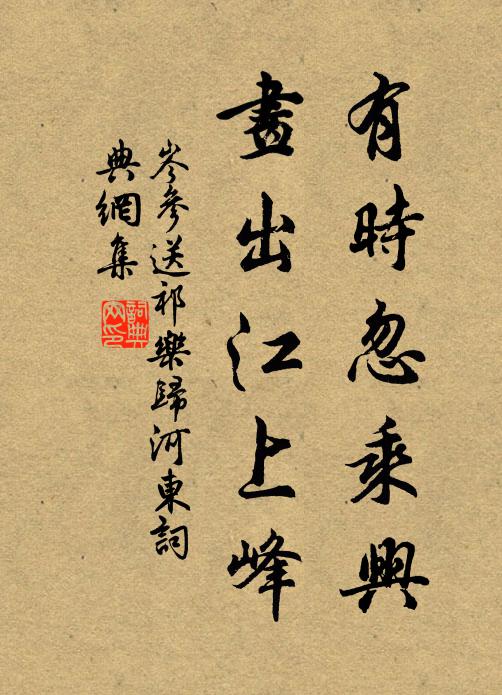 有時忽乘興
畫出江上峰
岑參送祁樂歸河東詞
典網集
詞典
网印